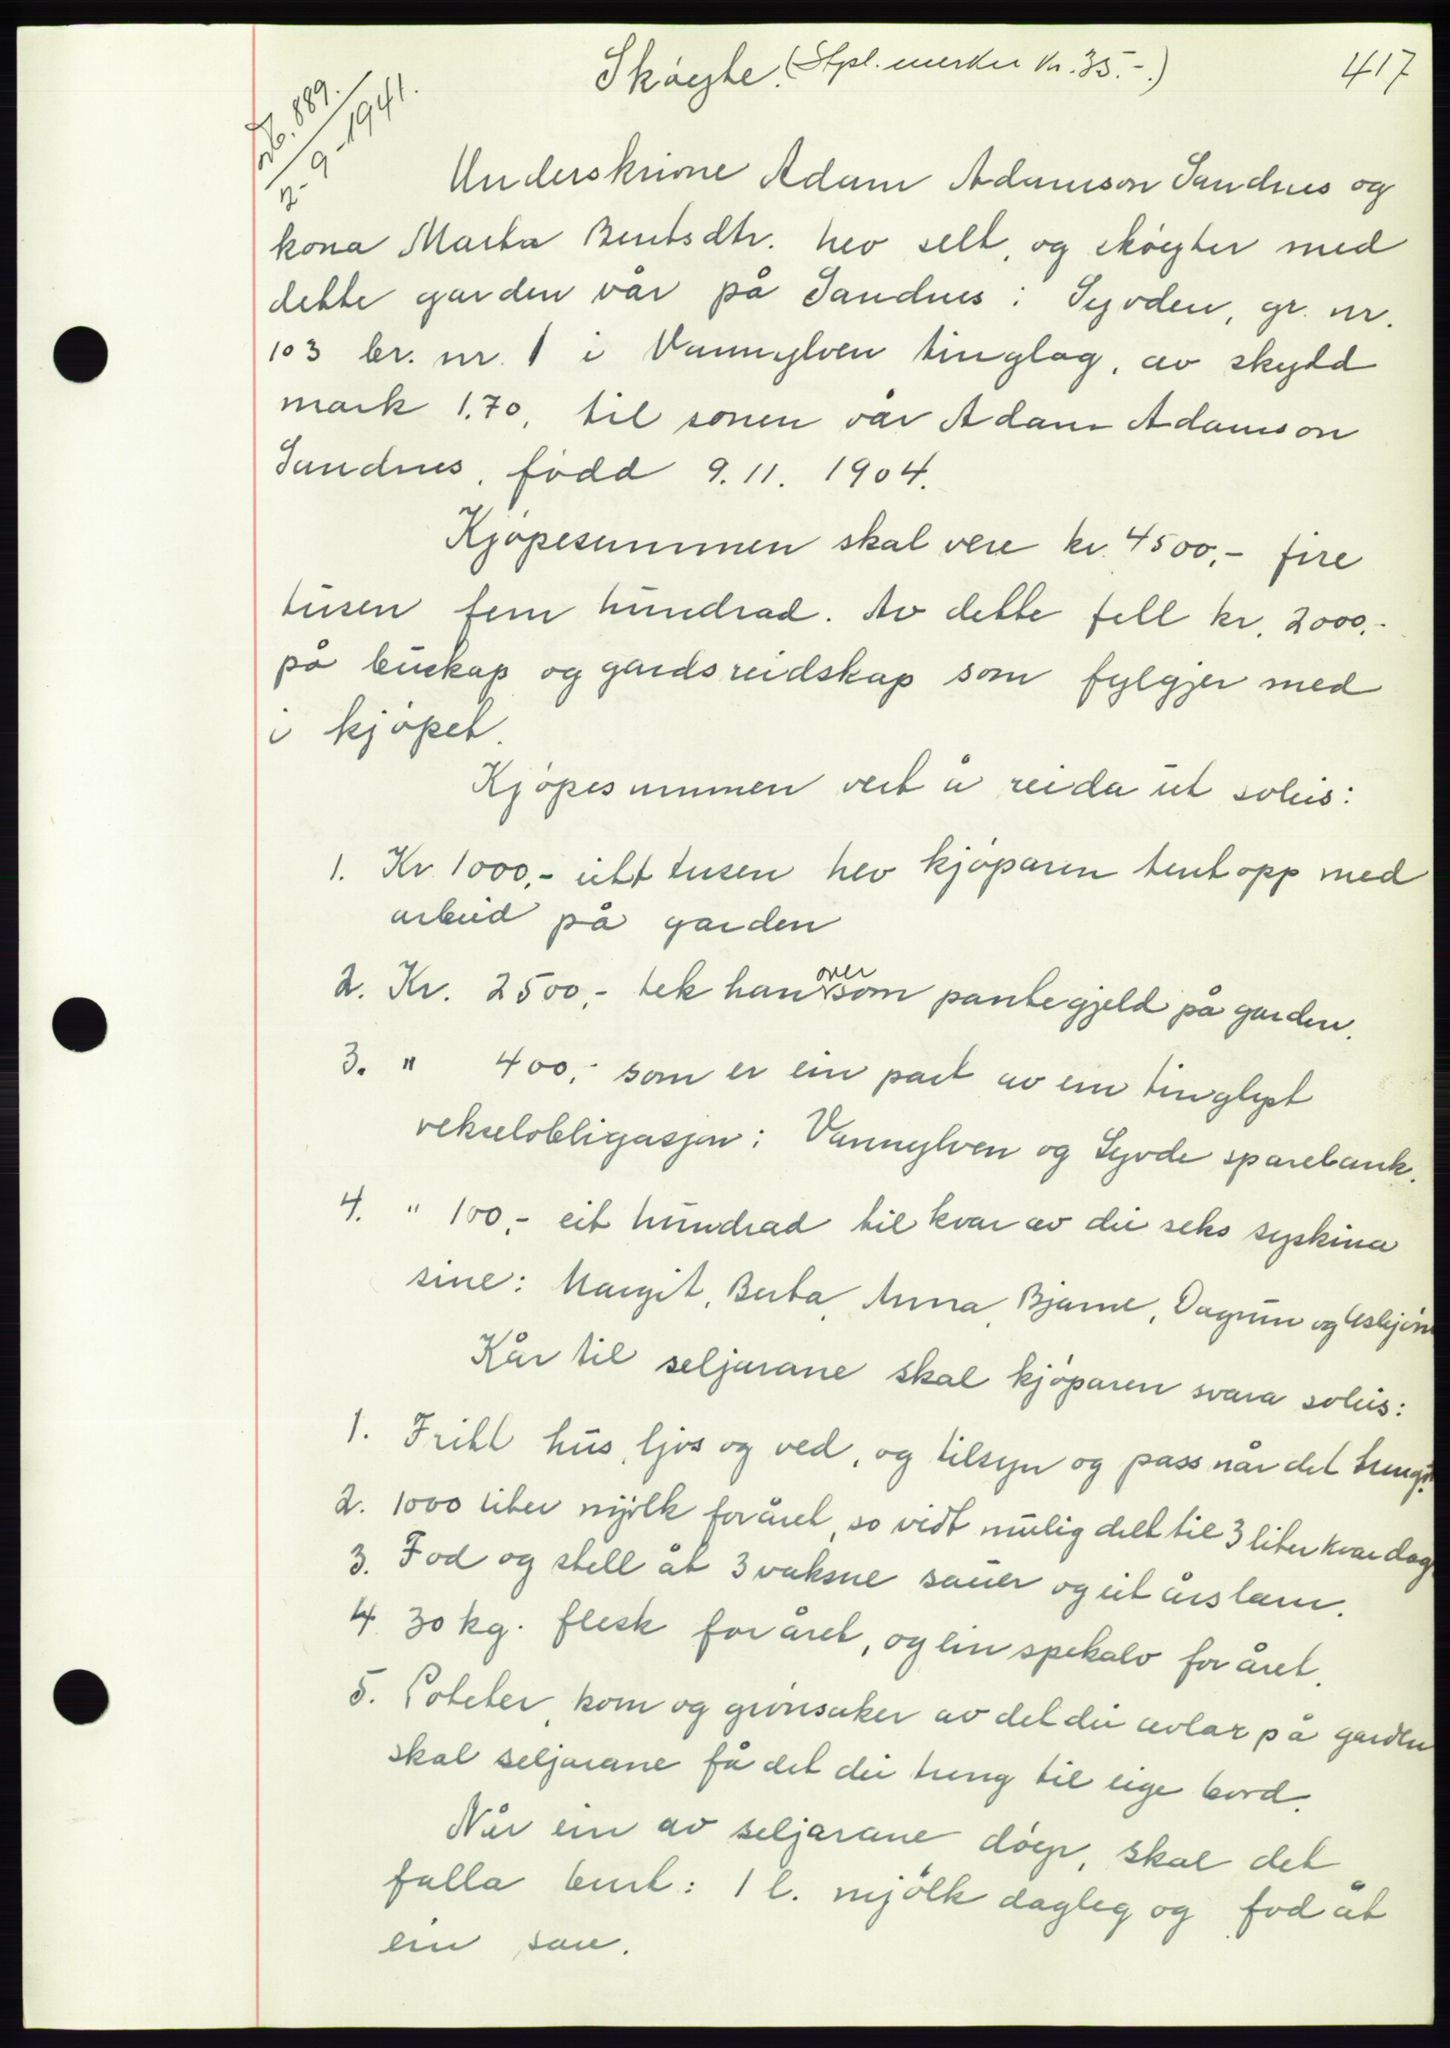 Skøyte. (Stpl.merker kr. 35.-.)
417
nb. 889.
2-9-1941.
Underskrivne Adam Adamson Sandnes og
kona Marta Bentsdtr. hev selt, og skøyter med
dette garden vår på Sandnes i Syvden, gr. nr.
103 br. nr. 1 i Vannylven tinglag, av skyld
mark 1.70, til sonen vår Adam Adamson
Sandnes, fødd 9.11. 1904.
Kjøpesummen skal vere kr. 4500,- fire
tusen fem hundrad. Av dette fell kr. 2000,-
på buskap og gardsreidskap som fylgjer med
i kjøpet.
Kjøpesummen vert å reida ut soleis:
1. Kr 1000,- eitt tusen hev kjøparen tent opp med
arbeid på garden
2. Kr. 2500,- tek han over som pantegjeld på garden.
3. " 400,- som er ein part av ein tinglyst
vekselobligasjon i Vannylven og Syvde sparebank.
4. " 100,- eit hundrad til kvar av dei seks syskina
sine: Margit, Berta, Anna, Bjarne, Dagrun og Asbjørn
Kår til seljarane skal kjøparen svara soleis:
1. Fritt hus, ljos og ved, og tilsyn og pass når det tengst.
2. 1000 liter mjølk for året, so vidt mulig delt til 3 liter kvar dag
3. Fod og stell åt 3 vaksne sauer og eit årslam.
4 30 kg. flesk for året, og ein spekalv for året.
5. Poteter, korn og grønsaker av det dei avlar på garden
skal seljarane få det dei treng til eige bord.
Når ein av seljarane døyr, skal det
falla burt: 1 l. mjølk dagleg og fod åt
ein sau.